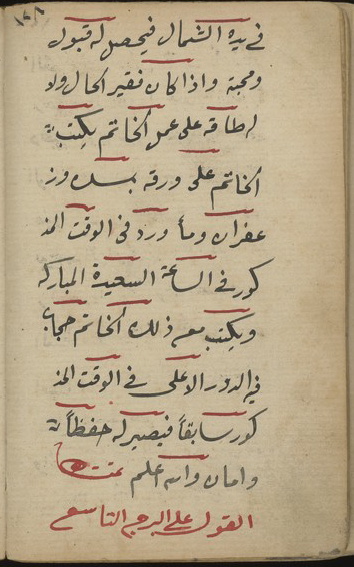 ١٤٨
في يده الشمال فيحصل له قبول
ومحبة واذا كان فقير الحال ولا
له طاقه على عمل الخاتم يكتب
الخاتم على ورقه بسك وز
عفران ومأ ورد في الوقت المذ
كور في الساعة السعيدة المباركه
ويكتب مع ذلك الخاتم حجاب
في الدور الاعلى في الوقت المذ
كور سابقاً فيصير له حفظاً
وامان والله اعلم تمت
القول على البرج التاسع